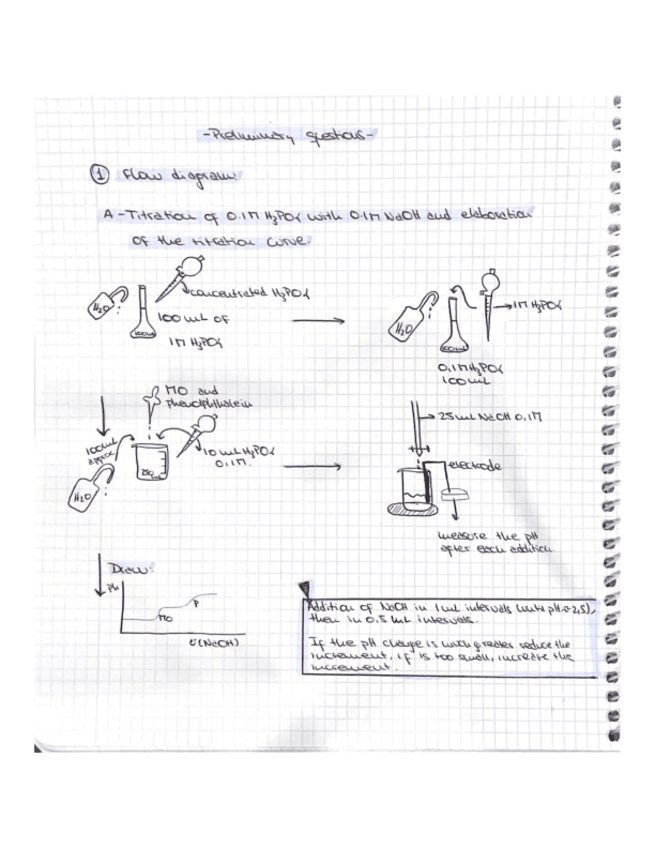 -Preliminary questions-
1 Flow diagram:
A-Titration of 0.1M H₃PO₄ with 0.1M NaOH and elaboration
of the titration curve.
H₂O
concentrated H₃PO₄
100 mL
100 mL of
1M H₃PO₄
H₂O
1M H₃PO₄
100mL
0.1M H₃PO₄
100 mL
MO and
phenolphthalein
100mL
approx
H₂O
250 mL
10 mL H₃PO₄
0.1M.
25 mL NaOH 0.1M
electrode
measure the pH
after each addition
Draw:
Ph
MO
P
V(NaOH)
Addition of NaOH in 1 mL intervals (until
then in 0.5 mL intervals.
If the pH change is much greater reduce the
increment, if is too small, increase the
increment.